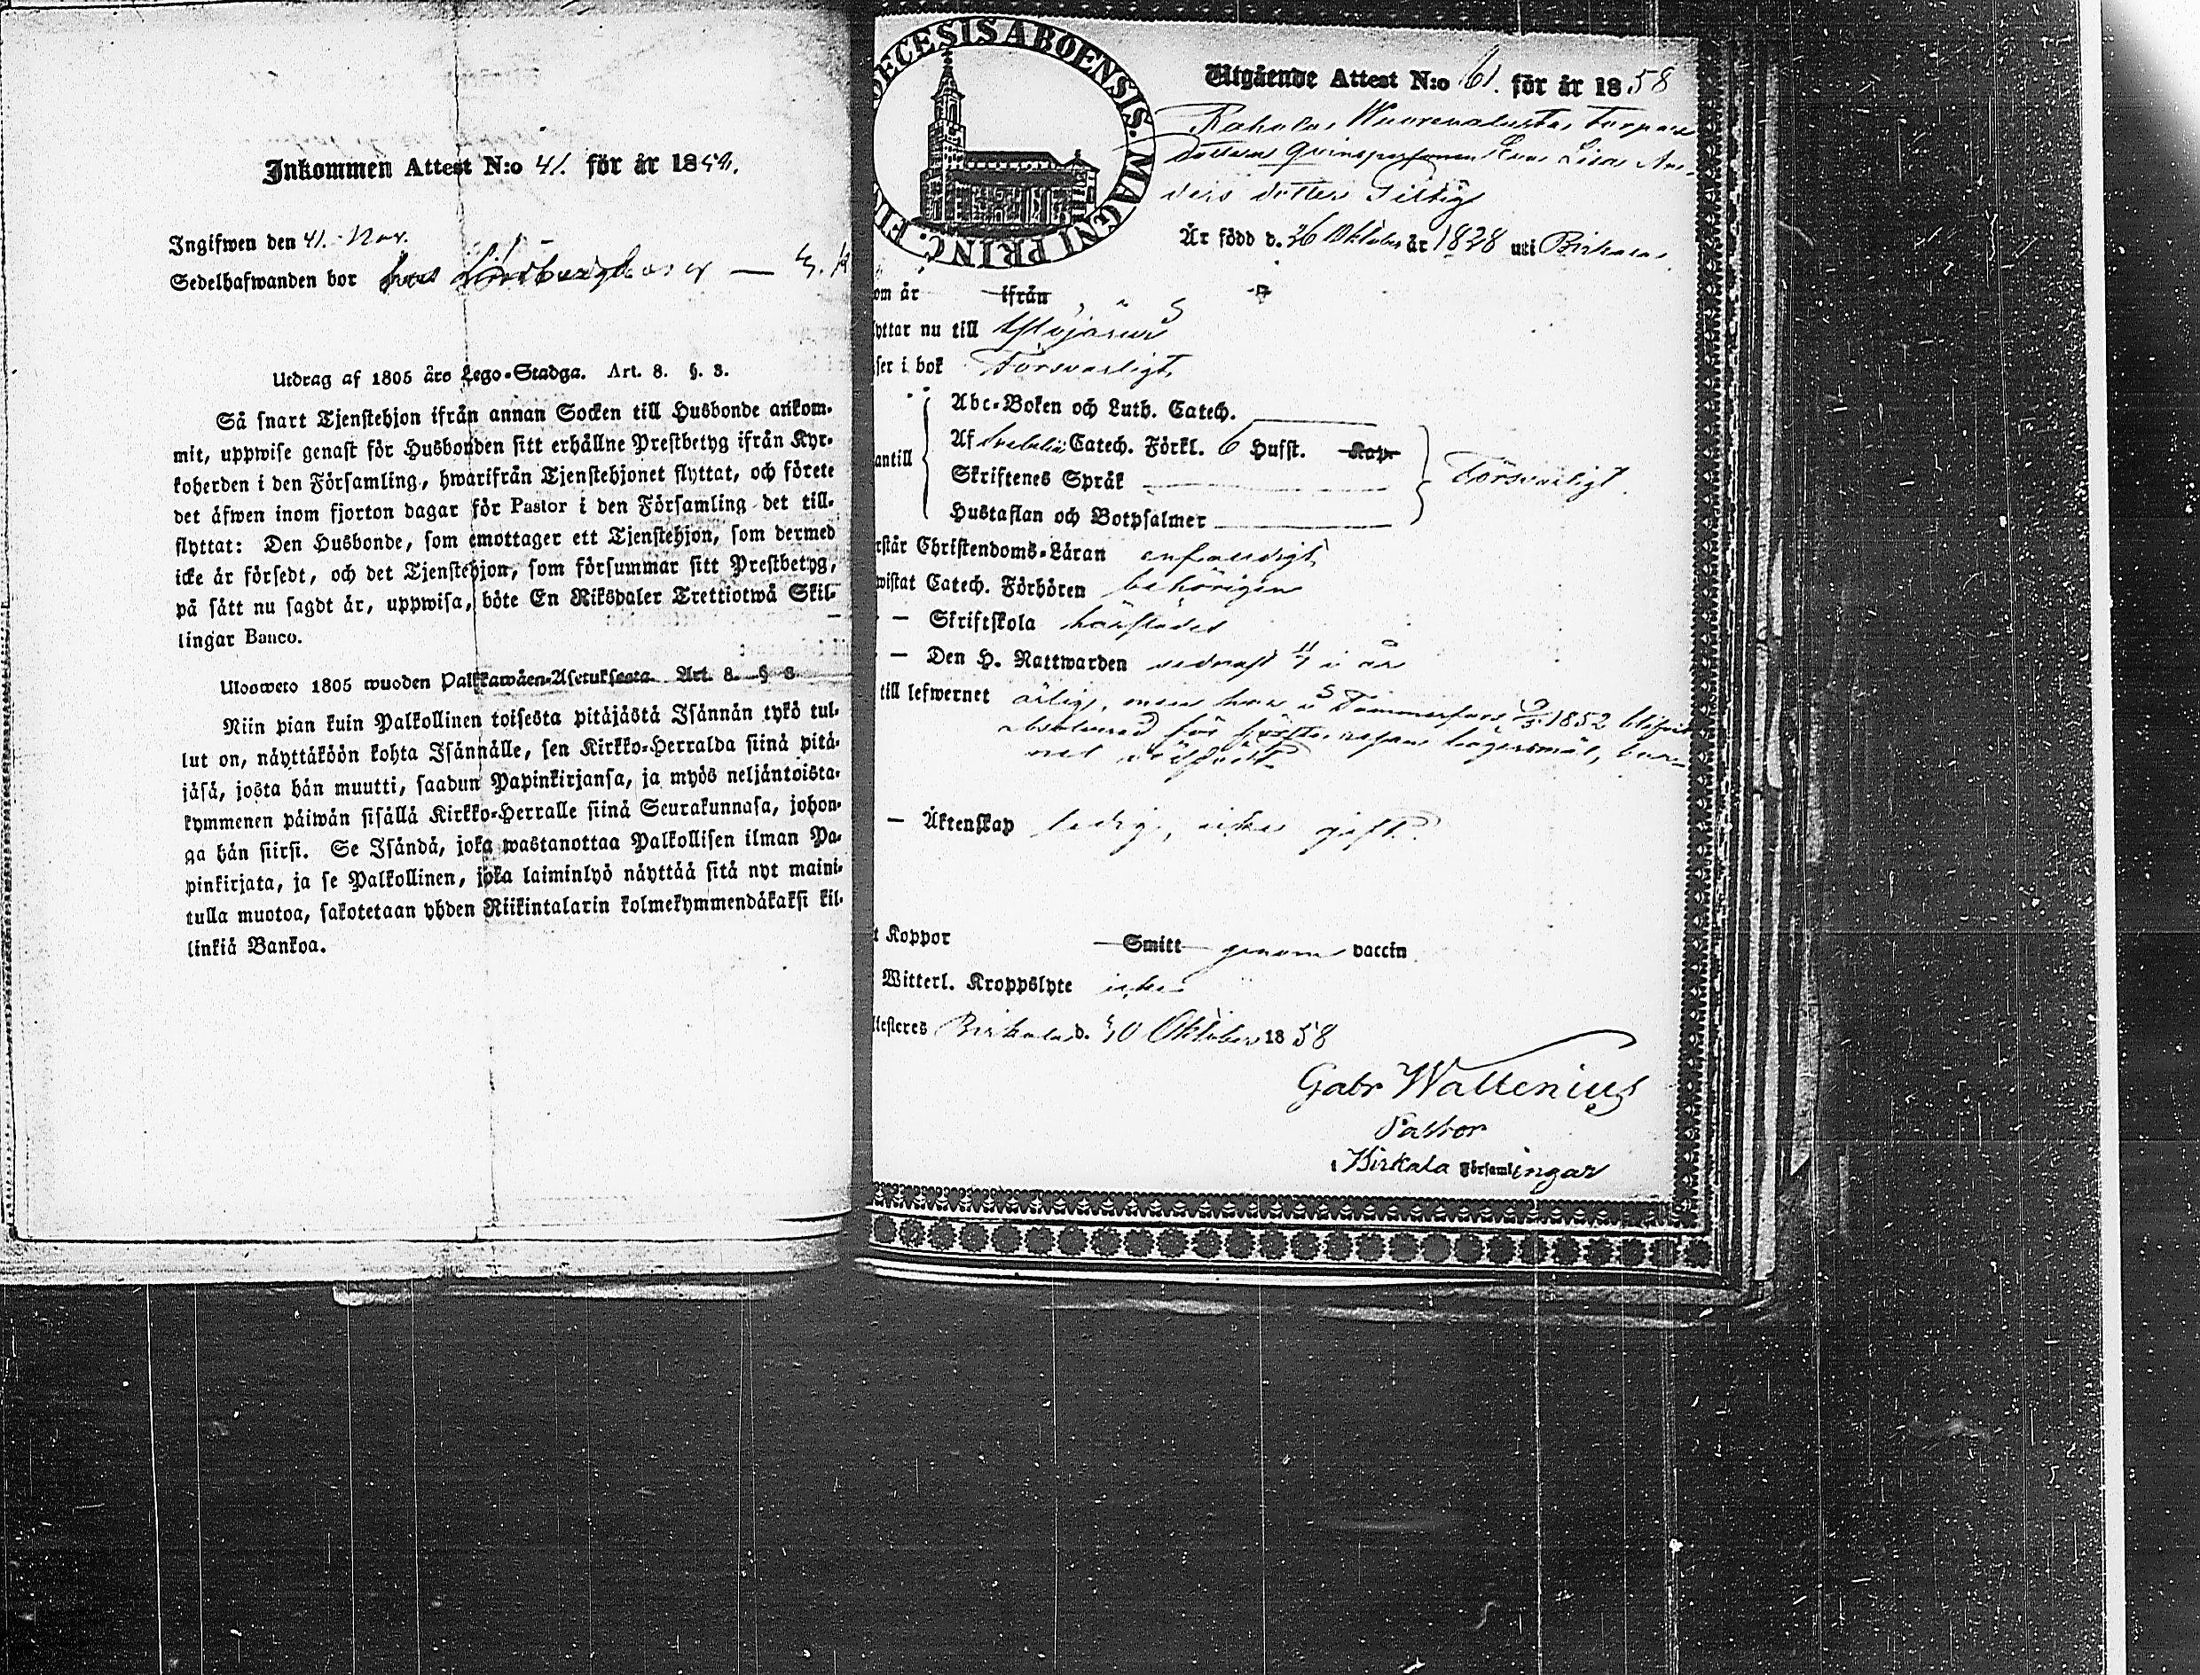 Inkommen Attest N:o 41. för år 1859.
Ingifwen den 41. Nov.
Sedelhafwanden bor hos
Utdrag af 1805 års Lego-Stadga. Art. 8. §. 3.
Så snart Tjenstehjon ifrån annan Socken till Husbonde ankom-
mit, uppwise genast för Husbonden sitt erhållne Prestbetyg ifrån Kyr-
koherden i den Församling, hwarifrån Tjenstehjonet flyttat, och förete
det äfwen inom fjorton dagar för Pastor i den Församling det till-
flyttat: Den Husbonde, som emottager ett Tjenstehjon, som dermed
icke är försedt, och det Tjenstehjon, som försummar sitt Prestbetyg,
på sätt nu sagdt är, uppwisa, böte En Riksdaler Trettiotwå Skil-
lingar Banco.
Ulosweto 1805 wuoden Palkkawäen-Asetuksesta. Art. 8. § 3
Niin pian kuin Palkollinen toisesta pitäjästä Isännän tykö tul-
lut on, näyttäköön kohta Isännälle, sen Kirkko-Herralda siinä pitä-
jäsä, josta hän muutti, saadun Papinkirjansa, ja myös neljäntoista-
kymmenen päiwän sisällä Kirkko-Herralle siinä Seurakunnasa, johon-
ga hän siirsi. Se Isändä, joka wastanottaa Palkollisen ilman Pa-
pinkirjata, ja se Palkollinen, joka laiminlyö näyttää sitä nyt maini-
tulla muotoa, sakotetaan yhden Riikintalarin kolmekymmendäkaksi kil-
linkiä Bankoa.
DECESIS ABOENSIS. MAGNI PRINC. FIN
Utgående Attest N:o 61. för år 1858
Rahola Wuorenalusta Torpare
dottern Qvinspersonen Eva Lisa An-
ders dotter Tillig
Är född d. 26 Oktober år 1828 uti Birkala
om år ifrån
yttar nu till Ylöjärvi
ser i bok Försvarligt
Abc-Boken och Luth. Catech.
antill
Af Svebilii Catech. Förkl. 6 Hufst. Kap.
Skriftenes Språk
Försvarligt.
Hustaflan och Botpsalmer
rstår Christendoms-Läran enfaldigt
wistat Catech. Förhören behörigen
— Skriftskola härstädes
— Den H. Nattwarden sednast i år
till lefwernet ärlig, men har i Tammerfors 1852 blifvit
absolverad för lägersmål, bar-
net
— Äktenskap ledig, icke gift.
t Koppor Smitt genom vaccin
Witterl. Kroppslyte icke
ttesteres Birkala d. 30 Oktober 1858
Gabr Wallenius
Pastor
i Birkala Församlingar